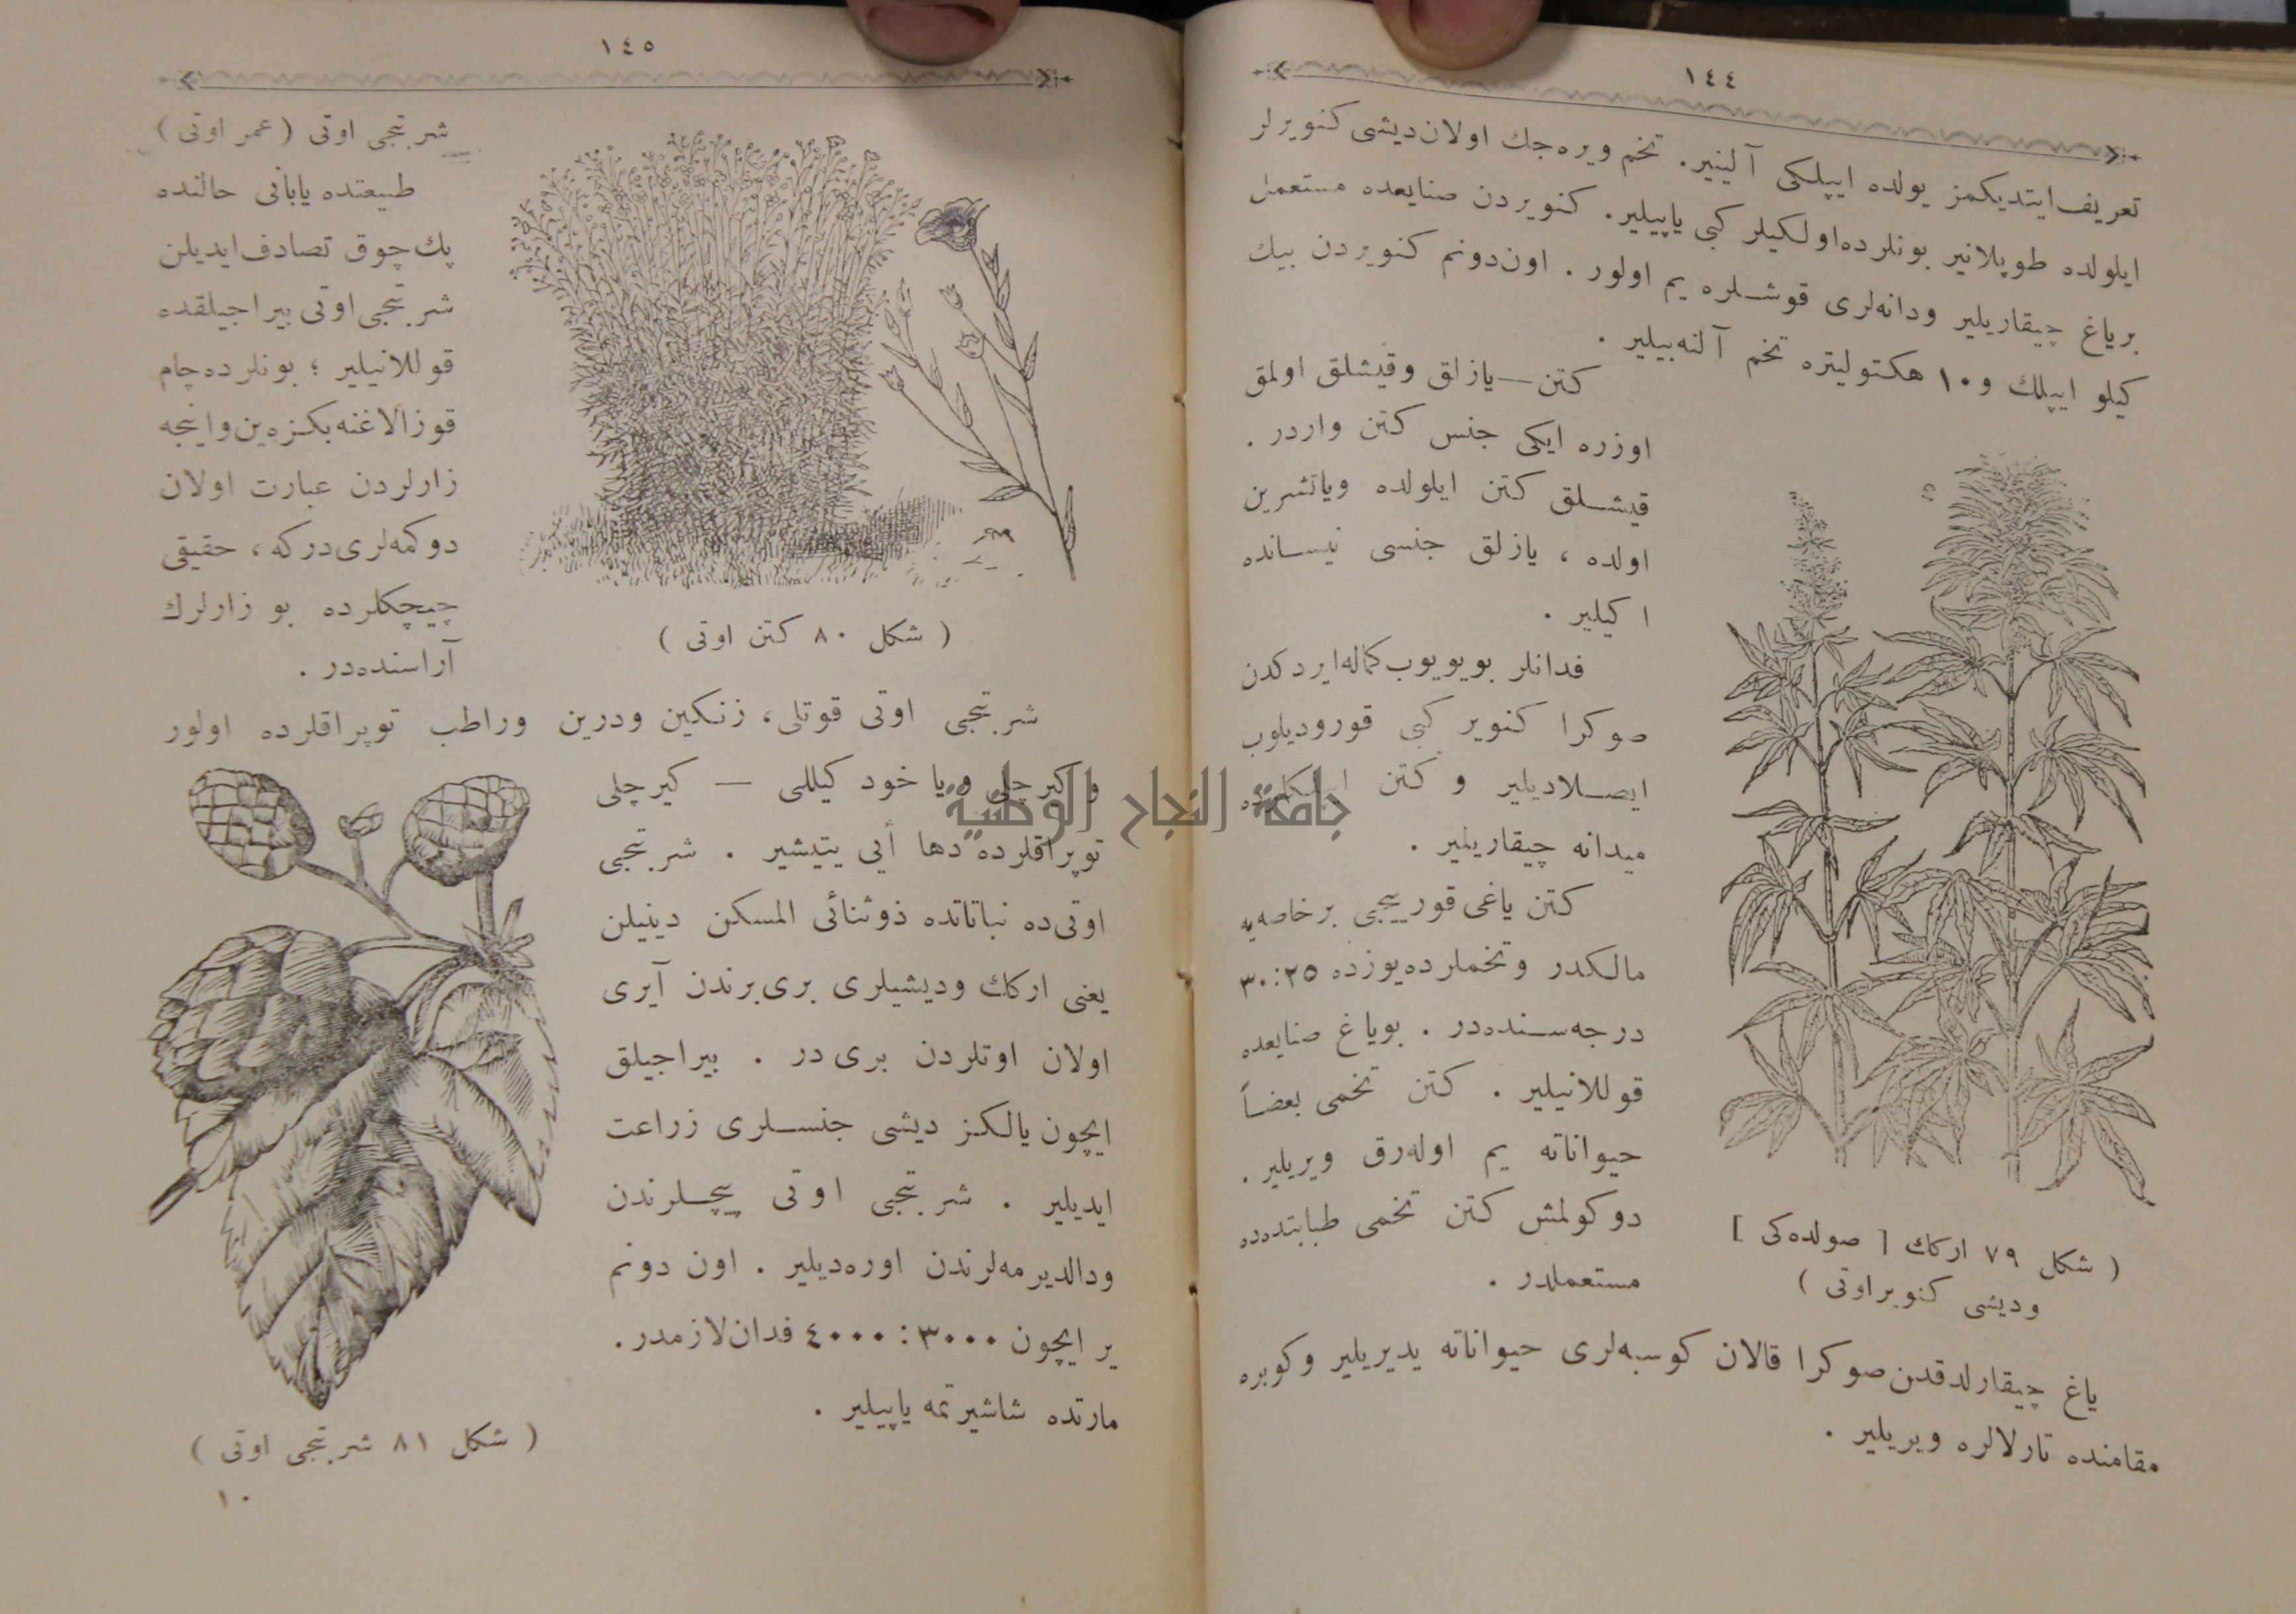 ١٤٤
تعريف ايتديكمز يولده ايپلكى آلينير. تخم ويره جك اولان ديشى كنويرلر
ايلولده طوپلانير بونلرده اولكيلر كبى ياپيلير. كنويردن صنايعده مستعمل
برياغ چيقاريلير ودانه‌لرى قوشلره يم اولور . اون دونم كنويردن بيك
كيلو ايپلك و ١٠ هكتوليتره تخم آلنه‌بيلير .
كتن — يازلق وقيشلق اولمق
اوزره ايكى جنس كتن واردر .
قيشلق كتن ايلولده وياتشرين
اولده ، يازلق جنسى نيسانده
اكيلير .
فدانلر بويويوب كماله ايردكدن
صوكرا كنوير كبى قوروديلوب
ايصلاديلير و كتن
ميدانه چيقاريلير .
كتن ياغى قورييجى بر خاصه‌يه
مالكدر وتخملرده يوزده ٢٥:٣٠
درجه‌سنده‌در . بوياغ صنايعده
قوللانيلير . كتن تخمى بعضاً
حيواناته يم اوله‌رق ويريلير .
دوكولمش كتن تخمى طبابتده‌ده
مستعملدر .
( شكل ٧٩ اركك [ صولده‌كى ]
وديشى كنويراوتى )
ياغ چيقارلدقدن صوكرا قالان كوسبه‌لرى حيواناته يديريلير وكوبره
مقامنده تارلالره ويريلير .
١٤٥
شربتجى اوتى ( عمر اوتى )
طبيعتده يابانى حالنده
پك چوق تصادف ايديلن
شربتجى اوتى بيراجيلقده
قوللانيلير ؛ بونلرده چام
قوزالاغنه بكزه‌ين واينجه
زارلردن عبارت اولان
دوكمه‌لرى دركه ، حقيقى
چيچكلرده بو زارلرك
آراسنده‌در .
( شكل ٨٠ كتن اوتى )
شربتجى اوتى قوتلى، زنكين ودرين وراطب توپراقلرده اولور
و كيرچلى ويا خود كيللى — كيرچلى
توپراقلرده دها أيى يتيشير . شربتجى
اوتى‌ده نباتاتده ذوثنائى المسكن دينيلن
يعنى اركك وديشيلرى برى برندن آيرى
اولان اوتلردن برى در . بيراجيلق
ايچون يالكز ديشى جنسلرى زراعت
ايديلير . شربتجى اوتى پيچلرندن
ودالديرمه‌لرندن اوره‌ديلير . اون دونم
ير ايچون ٣٠٠٠ : ٤٠٠٠ فدان لازمدر.
مارتده شاشيرتمه ياپيلير .
( شكل ٨١ شربتجى اوتى )
١٠
جامعة النجاح الوطنية